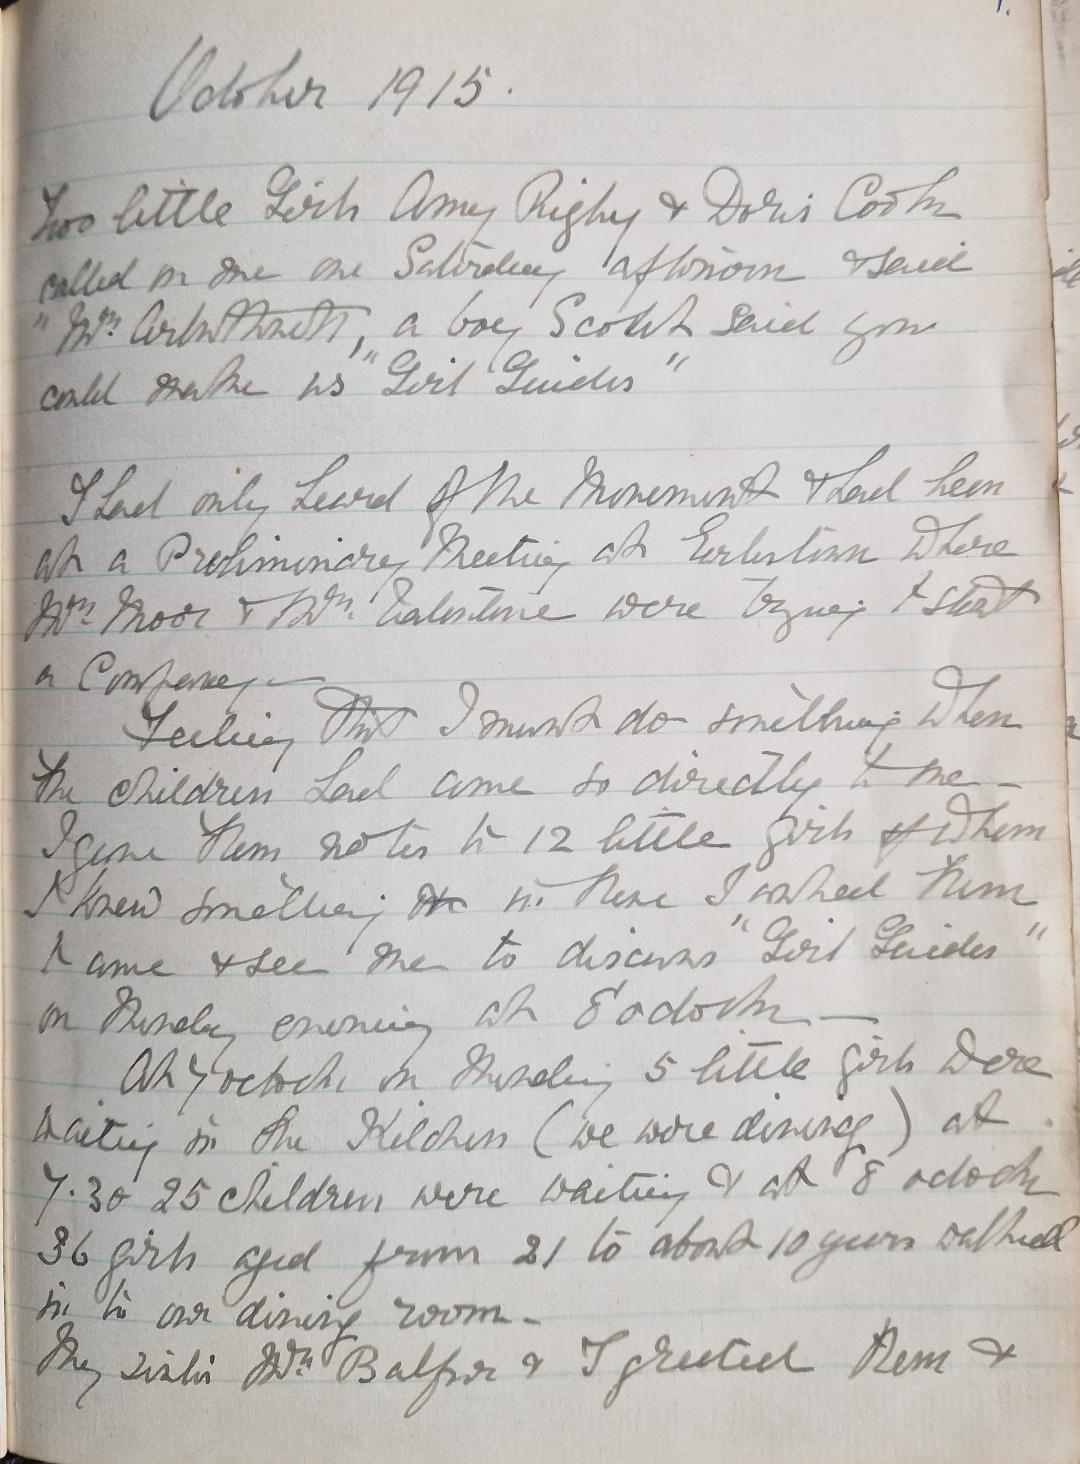 1.
October 1915.
Two little Girls Amy Rigby & Doris Cook
called on me one Saturday afternoon & said
"Mrs. Arbuthnott, a boy Scout said you
could make us "Girl Guides"
I had only heard of the Movement & had been
at a Preliminary Meeting at Earlestown where
Mrs Moor & Mrs. were trying to start
a Company —
Feeling that I must do something when
the children had come so directly to me —
I gave them notes to 12 little girls of whom
I knew something in these I asked them
to come & see me to discuss "Girl Guides"
on Thursday evening at 8 o'clock —
At 7 oclock on Thursday 5 little girls were
waiting in the Kitchen (we were dining) at
7.30 25 children were waiting & at 8 oclock
36 girls aged from 21 to about 10 years walked
in to our dining room —
My sister Mrs Balfour & I greeted them &